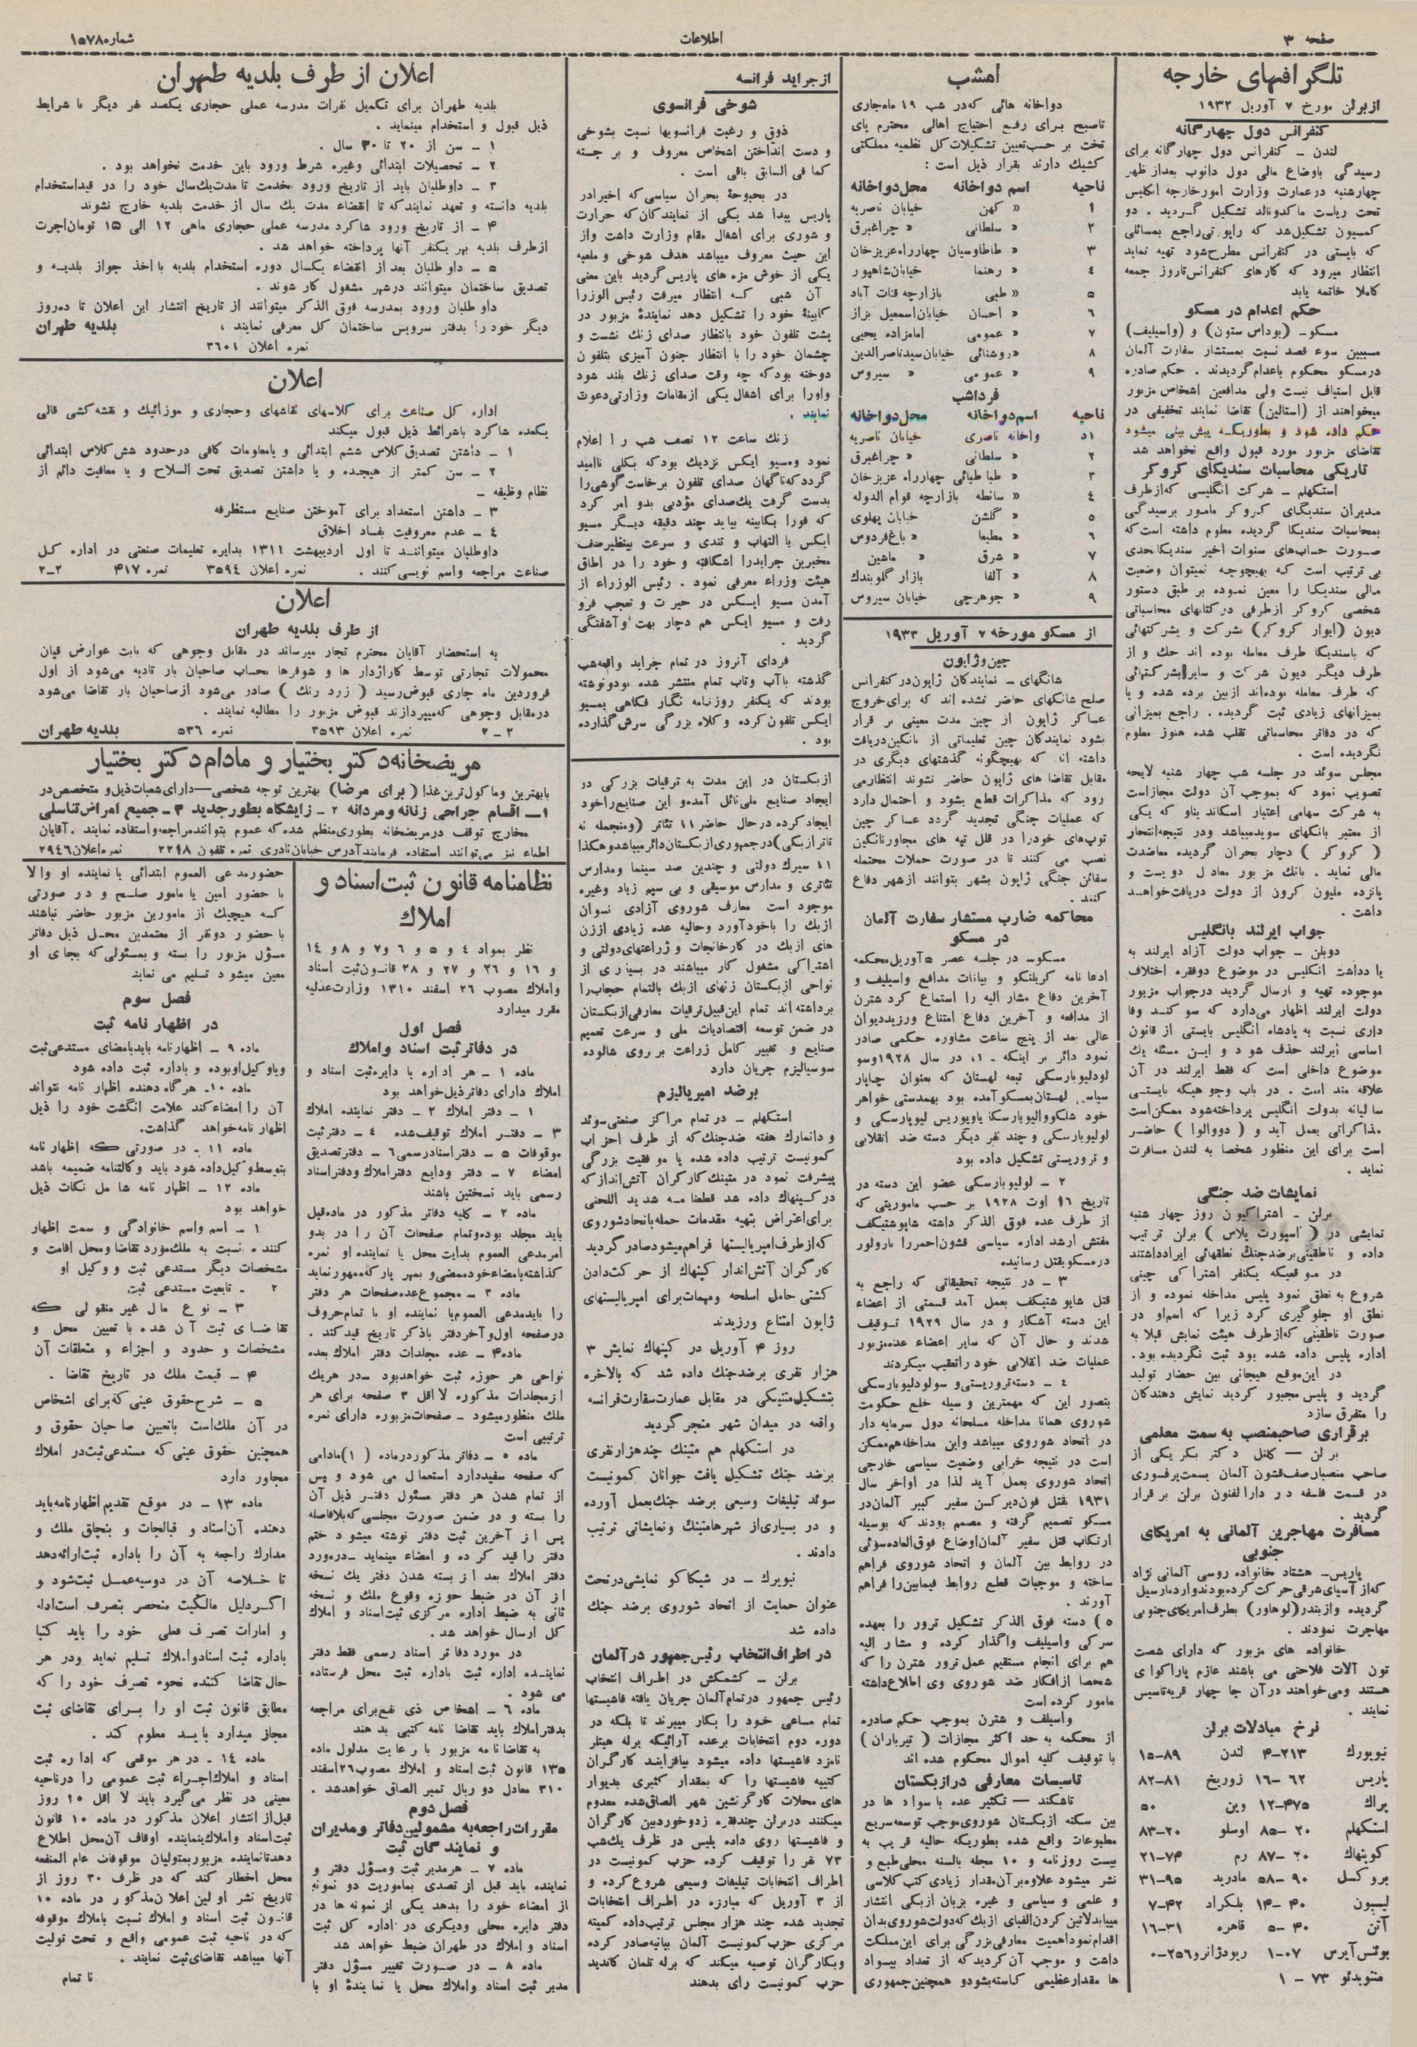 صفحه ۳
اطلاعات
شماره ۱۵۷۸
تلگرافهای خارجه
از برلن مورخ ۷ آوریل ۱۹۳۲
کنفرانس دول چهارگانه
لندن – کنفرانس دول چهارگانه برای
رسیدگی باوضاع مالی دول دانوب بعداز ظهر
چهارشنبه درعمارت وزارت امورخارجه انگلیس
تحت ریاست ماکدونالد تشکیل گردید . دو
کمسیون تشکیل شد که راپورتی راجع بمسائلی
که بایستی در کنفرانس مطرح شود تهیه نماید
انتظار میرود که کارهای کنفرانس تاروز جمعه
کاملا خاتمه یابد
حکم اعدام در مسکو
مسببین سوء قصد نسبت بمستشار سفارت آلمان
درمسکو محکوم باعدام گردیدند . حکم صادره
قابل استیناف نیست ولی مدافعین اشخاص مزبور
میخواهند از (استالین) تقاضا نمایند تخفیفی در
حکم داده شود و بطوریکه پیش بینی میشود
تقاضای مزبور مورد قبول واقع نخواهد شد
تاریکی محاسبات سندیکای کروکر
استکهلم – شرکت انگلیسی که ازطرف
مدیران سندیکای کروکر مامور برسیدگی
بمحاسبات سندیکا گردیده معلوم داشته است که
صورت حساب های سنوات اخیر سندیکا بحدی
بی ترتیب است که بهیچوجه نمیتوان وضعیت
مالی سندیکا را معین نموده بر طبق دستور
شخصی کروکر ازطرفی درکتابهای محاسباتی
دیون (ایوار کروکر) بشرکت و بشرکتهائی
که باسندیکا طرف معامله بوده اند حک و از
طرف دیگر دیون شرکت و سایر شرکتهائی
که طرف معامله بوده‌اند ازبین برده شده و یا
بمیزانهای زیادی ثبت گردیده . راجع بمیزانی
که در دفاتر محاسباتی تقلب شده هنوز معلوم
نگردیده است .
مجلس سوئد در جلسه شب چهار شنبه لایحه
تصویب نمود که بموجب آن دولت مجازاست
به شرکت سهامی اعتبار اسکاندیناو که یکی
از معتبر بانکهای سوید میباشد ودر نتیجه انتحار
( کروکر ) دچار بحران گردیده معاضدت
مالی نماید . بانک مزبور معادل دویست و
پانزده ملیون کرون از دولت دریافت خواهد
داشت .
جواب ایرلند بانگلیس
دوبلن – جواب دولت آزاد ایرلند به
یادداشت انگلیس در موضوع دوفقره اختلاف
موجوده تهیه و ارسال گردید درجواب مزبور
دولت ایرلند اظهار می‌دارد که سوگند وفا
داری نسبت به پادشاه انگلیس بایستی از قانون
اساسی ایرلند حذف شود و این مسئله یک
موضوع داخلی است که فقط ایرلند در آن
علاقه مند است . در باب وجوهیکه بایستی
سالیانه بدولت انگلیس پرداخته شود ممکن است
مذاکراتی بعمل آید و ( دووالرا ) حاضر
است برای این منظور شخصا به لندن مسافرت
نماید .
نمایشات ضد جنگی
برلن – اشتراکیون روز چهار شنبه
نمایشی در ( اسپورت پلاس ) برلن ترتیب
داده و ناطقینی برضد جنگ نطقهائی ایراد داشتند
در موقعیکه یکنفر اشتراکی چینی
شروع به نطق نمود پلیس مداخله نموده و از
نطق او جلوگیری کرد زیرا که اسم او در
صورت ناطقینی که ازطرف هیئت نمایش قبلا به
اداره پلیس داده شده بود ثبت نگردیده بود.
در این موقع هیجانی بین حضار تولید
گردید و پلیس مجبور گردید نمایش دهندگان
را متفرق سازد
برقراری صاحبمنصب به سمت معلمی
صاحب منصبان صف قشون آلمان بسمت پرفسوری
در قسمت فلسفه در دارالفنون برلن برقرار
گردید .
مسافرت مهاجرین آلمانی به امریکای
جنوبی
پاریس – هشتاد خانواده روسی آلمانی نژاد
که از آسیای شرقی حرکت کرده بودند وارد مارسیل
گردیده و از بندر (لوهاور) بطرف امریکای جنوبی
مهاجرت نمودند .
خانواده های مزبور که دارای شصت
تون آلات فلاحتی می باشند عازم پاراگوای
هستند و می‌خواهند درآن جا چهار قریه تاسیس
نمایند .
نرخ مبادلات برلن
نیویورک ۲۱۳–۴ لندن ۸۹–۱۵
پاریس ۶۲–۱۶ زوریخ ۸۱–۸۲
پراک ۴۷۵–۱۲ وین ۵۰
استکهلم ۲۰–۸۵ اوسلو ۲۰–۸۳
کوپنهاک ۲۰–۸۷ رم ۷۴–۲۱
بروکسل ۹۰–۵۸ مادرید ۹۵–۳۱
لیسبون ۴۰–۱۴ بلکراد ۴۲–۷
آتن ۴۰–۵ قاهره ۳۱–۱۶
بوئنس‌آیرس ۰۷–۱ ریودژانرو ۲۵۶–۰
منتویدئو ۷۳–۱
امشب
دواخانه هائی که در شب ۱۹ ماه جاری
تاصبح برای رفع احتیاج اهالی محترم پای
تخت بر حسب تعیین تشکیلات کل نظمیه مملکتی
کشیک دارند بقرار ذیل است :
ناحیه اسم دواخانه محل دواخانه
۱ « کهن خیابان ناصریه
۲ « سلطانی « چراغبرق
۳ « طاطاوسیان چهارراه عزیزخان
۴ « رهنما خیابان شاهپور
۵ « طبی بازارچه قنات آباد
۶ « احسان خیابان اسمعیل بزاز
۷ « عمومی امامزاده یحیی
۸ « روشنائی خیابان سیدناصرالدین
۹ « عمومی « سیروس
فرداشب
ناحیه اسم دواخانه محل دواخانه
۱ دواخانه ناصری خیابان ناصریه
۲ « سلطانی « چراغبرق
۳ « طباطبائی چهارراه عزیزخان
۴ « سانطه بازارچه قوام الدوله
۵ « گلشن خیابان پهلوی
۶ « مطیعا « باغ فردوس
۷ « شرق « ماشین
۸ « آلفا بازار گلوبندک
۹ « جوهرچی خیابان سیروس
از مسکو مورخه ۷ آوریل ۱۹۳۲
چین و ژاپون
شانگهای – نمایندگان ژاپون در کنفرانس
صلح شانگهای حاضر نشده اند که برای خروج
عساکر ژاپون از چین مدت معینی بر قرار
بشود نمایندگان چین تعلیماتی از نانکین دریافت
داشته اند که بهیچگونه گذشتهای دیگری در
مقابل تقاضا های ژاپون حاضر نشوند انتظار می
رود که مذاکرات قطع بشود و احتمال دارد
که عملیات جنگی تجدید گردد عساکر چین
توپ‌های خودرا در قلل تپه های مجاور نانکین
نصب می کنند تا در صورت حملات محتمله
سفائن جنگی ژاپون بشهر بتوانند ازشهر دفاع
کنند .
محاکمه ضارب مستشار سفارت آلمان
در مسکو
مسکو – در جلسه عصر ۵ آوریل محکمه
ادعا نامه کریلنکو و بیانات مدافع واسیلیف و
آخرین دفاع مشار الیه را استماع کرد شترن
از مدافعه و آخرین دفاع امتناع ورزید دیوان
عالی بعد از پنج ساعت مشاوره حکمی صادر
نمود دائر بر اینکه – ۱، در سال ۱۹۲۸ وسو
لودلیوبارسکی تبعه لهستان که بعنوان چاپار
سیاسی لهستان بمسکو آمده بود بهمدستی خواهر
لولیوبارسکی و چند نفر دیگر دسته ضد انقلابی
و تروریستی تشکیل داده بود
۲ – لولیوبارسکی عضو این دسته در
تاریخ ۱۶ اوت ۱۹۲۸ بر حسب ماموریتی که
از طرف عده فوق الذکر داشته شاپوشنیکف
مفتش ارشد اداره سیاسی قشون احمر را با رولور
در مسکو بقتل رسانیده
۳ – در نتیجه تحقیقاتی که راجع به
قتل شاپوشنیکف بعمل آمد قسمتی از اعضاء
این دسته آشکار و در سال ۱۹۲۹ توقیف
شدند و حال آن که سایر اعضاء عده مزبور
عملیات ضد انقلابی خود را تعقیب میکردند
۴ – دسته تروریستی و سولودلیوبارسکی
بتصور این که مهمترین وسیله خلع حکومت
شوروی همانا مداخله مسلحانه دول سرمایه دار
در اتحاد شوروی میباشد و این مداخله هم ممکن
است در نتیجه خرابی وضعیت سیاسی خارجی
اتحاد شوروی بعمل آید لذا در اواخر سال
۱۹۳۱ بقتل فون دیرکسن سفیر کبیر آلمان در
مسکو تصمیم گرفته و مصمم بودند که بوسیله
ارتکاب قتل سفیر آلمان اوضاع فوق العاده سوئی
در روابط بین آلمان و اتحاد شوروی فراهم
ساخته و موجبات قطع روابط فیمابین را فراهم
آورند .
۵) دسته فوق الذکر تشکیل ترور را بعهده
سرکی واسیلیف واگذار کرده و مشار الیه
هم برای انجام مستقیم عمل ترور شترن را که
شخصا از افکار ضد شوروی وی اطلاع داشته
مامور کرده است
واسیلف و شترن بموجب حکم صادره
از محکمه به حد اکثر مجازات ( تیرباران )
با توقیف کلیه اموال محکوم شده اند
تاسیسات معارفی در ازبکستان
تاشکند – تکثیر عده با سوادها در
بین سکنه ازبکستان شوروی موجب توسعه سریع
مطبوعات واقع شده بطوریکه حالیه قریب به
بیست روزنامه و ۱۰ مجله بالسنه محلی طبع و
نشر میشود علاوه بر آن مقدار زیادی کتب کلاسی
و علمی و سیاسی و غیره بزبان ازبکی انتشار
مییابد لاتین کردن الفبای ازبک که دولت شوروی بدان
اقدام نمود اهمیت معارفی بزرگی برای این مملکت
داشت و موجب آن گردید که از تعداد بیسواد
ها مقدار عظیمی کاسته بشود و همچنین جمهوری
از جراید فرانسه
شوخی فرانسوی
ذوق و رغبت فرانسویها نسبت بشوخی
و دست انداختن اشخاص معروف و بر جسته
کما فی السابق باقی است .
در بحبوحهٔ بحران سیاسی که اخیرا در
پاریس پیدا شد یکی از نمایندگان که حرارت
و شوری برای اشغال مقام وزارت داشت و از
این حیث معروف میباشد هدف شوخی و ملعبه
یکی از خوش مزه های پاریس گردید باین معنی
آن شبی که انتظار میرفت رئیس الوزرا
کابینهٔ خود را تشکیل دهد نمایندهٔ مزبور در
پشت تلفون خود بانتظار صدای زنک نشست و
چشمان خود را با انتظار جنون آمیزی بتلفون
دوخته بود که چه وقت صدای زنک بلند شود
و اورا برای اشغال یکی از مقامات وزارتی دعوت
نمایند .
زنک ساعت ۱۲ نصف شب را اعلام
نمود و مسیو ایکس نزدیک بود که بکلی ناامید
گردد که ناگهان صدای تلفون برخاست گوشی را
بدست گرفت یک صدای مؤدبی بدو امر کرد
که فورا بکابینه بیاید چند دقیقه دیگر مسیو
ایکس با التهاب و تندی و سرعت بینظیر صف
مخبرین جراید را شکافته و خود را در اطاق
هیئت وزراء معرفی نمود . رئیس الوزراء از
آمدن مسیو ایکس در حیرت و تعجب فرو
رفت و مسیو ایکس هم دچار بهت و آشفتگی
گردید .
فردای آنروز در تمام جراید واقعه شب
گذشته باآب وتاب تمام منتشر شده بود و نوشته
بودند که یکنفر روزنامه نگار فکاهی بمسیو
ایکس تلفون کرده و کلاه بزرگی سرش گذارده
بود .
ازبکستان در این مدت به ترقیات بزرگی در
ایجاد صنایع ملی نائل آمده و این صنایع را خود
ایجاد کرده در حال حاضر ۱۱ تئاتر (و منجمله نه
تاتر ازبکی) در جمهوری ازبکستان دائر میباشد و هکذا
۱۱ سیرک دولتی و چندین صد سینما ومدارس
تئاتری و مدارس موسیقی و بی سیم زیاد وغیره
موجود است معارف شوروی آزادی نسوان
ازبک را با خود آورد و حالیه عده زیادی از زن
های ازبک در کارخانجات و زراعتهای دولتی و
اشتراکی مشغول کار میباشند در بسیاری از
نواحی ازبکستان زنهای ازبک بالتمام حجاب را
برداشته اند تمام این قبیل ترقیات معارفی ازبکستان
در ضمن توسعه اقتصادیات ملی و سرعت تعمیم
صنایع و تغییر کامل زراعت بر روی شالوده
سوسیالیزم جریان دارد
برضد امپریالیزم
استکهلم – درتمام مراکز صنعتی سوئد
و دانمارک هفته ضد جنگ که از طرف احزاب
کمونیست ترتیب داده شده با موفقیت بزرگی
پیشرفت نمود در متینک کارگران آتش انداز که
در کپنهاک داده شد قطعنامه شدید اللحنی
برای اعتراض بتهیه مقدمات حمله باتحاد شوروی
که از طرف امپریالیستها فراهم میشود صادر گردید
کارگران آتش‌انداز کپنهاک از حرکت دادن
کشتی حامل اسلحه و مهمات برای امپریالیستهای
ژاپون امتناع ورزیدند
روز ۴ آوریل در کپنهاک نمایش ۳
هزار نفری برضد جنک داده شد که بالاخره
بتشکیل متینکی در مقابل عمارت سفارت فرانسه
واقعه در میدان شهر منجر گردید
در استکهلم هم متینک چند هزار نفری
برضد جنک تشکیل یافت جوانان کمونیست
سوئد تبلیغات وسیعی برضد جنک بعمل آورده
و در بسیاری از شهرها متینک و نمایشاتی ترتیب
دادند .
نیویرک – در شیکاکو نمایشی در تحت
عنوان حمایت از اتحاد شوروی برضد جنک
داده شد
در اطراف انتخاب رئیس جمهور در آلمان
برلن – کشمکش در اطراف انتخاب
رئیس جمهور در تمام آلمان جریان یافته فاشیستها
تمام مساعی خود را بکار میبرند تا بلکه در
دوره دوم انتخابات برعده آرائیکه برله هیتلر
نامزد فاشیستها داده میشود بیافزایند کارگران
کتیبه فاشیستها را که بمقدار کثیری بدیوار
های محلات کارگرنشین شهر الصاق شده معدوم
میکنند در برلن چند فقره زد و خورد بین کارگران
و فاشیستها روی داده پلیس در ظرف یک شب
۷۳ نفر را توقیف کرده حزب کمونیست در
اطراف انتخابات تبلیغات وسیعی شروع کرده و
از ۳ آوریل که مبارزه در اطراف انتخابات
تجدید شده چند هزار مجلس ترتیب داده کمیته
مرکزی حزب کمونیست آلمان بیانیه صادر کرده
و بکارگران توصیه میکند که برله تلمان کاندید
حزب کمونیست رای بدهند
اعلان از طرف بلدیه طهران
بلدیه طهران برای تکمیل نفرات مدرسه عملی حجاری یکصد نفر دیگر با شرایط
ذیل قبول و استخدام مینماید .
۱ – سن از ۲۰ تا ۳۰ سال .
۲ – تحصیلات ابتدائی وغیره شرط ورود باین خدمت نخواهد بود .
۳ – داوطلبان باید از تاریخ ورود بخدمت تا مدت یک سال خود را در قید استخدام
بلدیه دانسته و تعهد نمایند که تا انقضاء مدت یک سال از خدمت بلدیه خارج نشوند
۴ – از تاریخ ورود شاگرد مدرسه عملی حجاری ماهی ۱۲ الی ۱۵ تومان اجرت
ازطرف بلدیه بهر یکنفر آنها پرداخته خواهد شد .
۵ – داوطلبان بعد از انقضاء یکسال دوره استخدام بلدیه با اخذ جواز بلدیه و
تصدیق ساختمان میتوانند درشهر مشغول کار شوند .
داوطلبان ورود بمدرسه فوق الذکر میتوانند از تاریخ انتشار این اعلان تا ده روز
دیگر خود را بدفتر سرویس ساختمان کل معرفی نمایند . بلدیه طهران
نمره اعلان ۳۶۰۱
اعلان
اداره کل صناعت برای کلاسهای نقاشهای وحجاری و موزائیک و نقشه کشی قالی
یکعده شاگرد باشرائط ذیل قبول میکند
۱ – داشتن تصدیق کلاس ششم ابتدائی و یا معلومات کافی در حدود شش کلاس ابتدائی
۲ – سن کمتر از هیجده و یا داشتن تصدیق تحت السلاح و یا معافیت دائم از
نظام وظیفه –
۳ – داشتن استعداد برای آموختن صنایع مستظرفه
۴ – عدم معروفیت بفساد اخلاق
داوطلبان میتوانند تا اول اردیبهشت ۱۳۱۱ بدایره تعلیمات صنعتی در اداره کل
صناعت مراجعه و اسم نویسی کنند . نمره اعلان ۳۵۹۴ نمره ۴۱۷ ۲–۲
اعلان
از طرف بلدیه طهران
به استحضار آقایان محترم تجار میرساند در مقابل وجوهی که بابت عوارض قپان
محمولات تجارتی توسط کاراژدارها و شوفرها بحساب صاحبان بار تادیه می‌شود از اول
فروردین ماه جاری قبوض رسید ( زرد رنک ) صادر می‌شود از صاحبان بار تقاضا می‌شود
در مقابل وجوهی که میپردازند قبوض مزبور را مطالبه نمایند .
۲–۲ نمره اعلان ۳۵۹۳ نمره ۵۳۶ بلدیه طهران
مریضخانه دکتر بختیار و مادام دکتر بختیار
بابهترین وماکول ترین غذا (برای مرضا) بهترین توجه شخصی – دارای شعبات ذیل و متخصص در
۱ – اقسام جراحی زنانه و مردانه ۲ – زایشگاه بطور جدید ۳ – جمیع امراض تناسلی
مخارج توقف در مریضخانه بطوری منظم شده که عموم بتوانند مراجعه و استفاده نمایند . آقایان
اطباء نیز می‌توانند استفاده فرمایند آدرس خیابان نادری نمره تلفون ۲۲۱۸ نمره اعلان ۲۹۴۶
نظامنامه قانون ثبت اسناد و
املاک
نظر بمواد ۴ و ۵ و ۶ و ۷ و ۸ و ۱۴
و ۱۶ و ۲۶ و ۲۷ و ۲۸ قانون ثبت اسناد
و املاک مصوب ۲۶ اسفند ۱۳۱۰ وزارت عدلیه
مقرر میدارد
فصل اول
در دفاتر ثبت اسناد و املاک
ماده ۱ – هر اداره یا دایره ثبت اسناد و
املاک دارای دفاتر ذیل خواهد بود
۱ – دفتر املاک ۲ – دفتر نماینده املاک
۳ – دفتر املاک توقیف شده ۴ – دفتر ثبت
موقوفات ۵ – دفتر اسناد رسمی ۶ – دفتر تصدیق
امضاء ۷ – دفتر ودایع دفتر املاک و دفتر اسناد
رسمی باید نسختین باشند
ماده ۲ – کلیه دفاتر مذکور در ماده قبل
باید مجلد بوده و تمام صفحات آن را در بدو
امر مدعی العموم بدایت محل یا نماینده او نمره
گذاشته بامضاء خود ممضی و بمهر پارکه ممهور نماید
ماده ۳ – مجموع عده صفحات هر دفتر
را باید مدعی العموم یا نماینده او با تمام حروف
در صفحه اول و آخر دفتر باذکر تاریخ قید کند .
ماده ۴ – عده مجلدات دفتر املاک بعده
نواحی هر حوزه ثبت خواهد بود – در هر یک
از مجلدات مذکوره لااقل ۳ صفحه برای هر
ملک منظور میشود – صفحات مزبوره دارای نمره
ترتیبی است
ماده ۵ – دفاتر مذکور در ماده (۱) مادامی
که صفحه سفید دارد استعمال می شود و پس
از تمام شدن هر دفتر مسئول دفتر ذیل آن
را بسته و در ضمن صورت مجلسی که بلافاصله
پس از آخرین ثبت دفتر نوشته میشود ختم
دفتر را قید کرده و امضاء مینماید – در مورد
دفتر املاک بعد از بسته شدن دفتر یک نسخه
از آن در ضبط حوزه وقوع ملک و نسخه
ثانی به ضبط اداره مرکزی ثبت اسناد و املاک
کل ارسال خواهد شد .
در مورد دفاتر اسناد رسمی فقط دفتر
نماینده اداره ثبت باداره ثبت محل فرستاده
می شود .
ماده ۶ – اشخاص ذی نفع برای مراجعه
بدفتر املاک باید تقاضا نامه کتبی بدهند
به تقاضا نامه مزبور با رعایت مدلول ماده
۱۳۵ قانون ثبت اسناد و املاک مصوب ۲۶ اسفند
۳۱۰ معادل دو ریال تمبر الصاق خواهد شد .
فصل دوم
مقررات راجعه به مشمولین دفاتر و مدیران
و نمایندگان ثبت
ماده ۷ – هر مدیر ثبت و مسؤل دفتر و
نماینده باید قبل از تصدی بماموریت دو نمونه
از امضاء خود را بدهد یکی از نمونه ها در
دفتر دایره محلی و دیگری در اداره کل ثبت
اسناد و املاک در طهران ضبط خواهد شد
ماده ۸ – در صورت تغییر مسؤل دفتر
مدیر ثبت اسناد و املاک محل یا نمایندهٔ او با
حضور مدعی العموم ابتدائی یا نماینده او والا
با حضور امین یا مامور صلح و در صورتی
که هیچیک از مامورین مزبور حاضر نباشند
با حضور دو نفر از معتمدین محل ذیل دفاتر
مسؤل مزبور را بسته و بمسئولی که بجای او
معین میشود تسلیم می نماید
فصل سوم
در اظهار نامه ثبت
ماده ۹ – اظهارنامه باید بامضای مستدعی ثبت
و یا وکیل او بوده و باداره ثبت داده شود
ماده ۱۰ – هر گاه دهنده اظهار نامه نتواند
آن را امضاء کند علامت انگشت خود را ذیل
اظهار نامه خواهد گذاشت.
ماده ۱۱ – در صورتی که اظهار نامه
بتوسط وکیل داده شود باید وکالتنامه ضمیمه باشد
ماده ۱۲ – اظهار نامه شامل نکات ذیل
خواهد بود
۱ – اسم و اسم خانوادگی و سمت اظهار
کننده نسبت به ملک مورد تقاضا و محل اقامت و
مشخصات دیگر مستدعی ثبت و وکیل او
۲ – تابعیت مستدعی ثبت
۳ – نوع مال غیر منقولی که
تقاضای ثبت آن شده با تعیین محل و
مشخصات و حدود و اجزاء و متعلقات آن
۴ – قیمت ملک در تاریخ تقاضا .
۵ – شرح حقوق عینی که برای اشخاص
در آن ملک است باتعیین صاحبان حقوق و
همچنین حقوق عینی که مستدعی ثبت در املاک
مجاور دارد
ماده ۱۳ – در موقع تقدیم اظهار نامه باید
دهنده آن اسناد و قبالجات و بنچاق ملک و
مدارک راجعه به آن را باداره ثبت ارائه دهد
تا خلاصه آن در دوسیه عمل ثبت شود و
اگر دلیل مالکیت منحصر بتصرف است ادله
و امارات تصرف فعلی خود را باید کتبا
باداره ثبت اسناد و املاک تسلیم نماید و در هر
حال تقاضا کننده نحوه تصرف خود را که
مطابق قانون ثبت او را برای تقاضای ثبت
مجاز میدارد باید معلوم کند .
ماده ۱۴ – در هر موقعی که اداره ثبت
اسناد و املاک اجراء ثبت عمومی را در ناحیه
معینی در نظر می‌گیرد باید لا اقل ۱۵ روز
قبل از انتشار اعلان مذکور در ماده ۱۰ قانون
ثبت اسناد و املاک بنماینده اوقاف آن محل اطلاع
دهد تا نماینده مزبور بمتولیان موقوفات عام المنفعه
محل اخطار کند که در ظرف ۳۰ روز از
تاریخ نشر اولین اعلان مذکور در ماده ۱۰
قانون ثبت اسناد و املاک نسبت باملاک موقوفه
که در ناحیه ثبت عمومی واقع و تحت تولیت
آنها میباشد تقاضای ثبت نمایند .
نا تمام